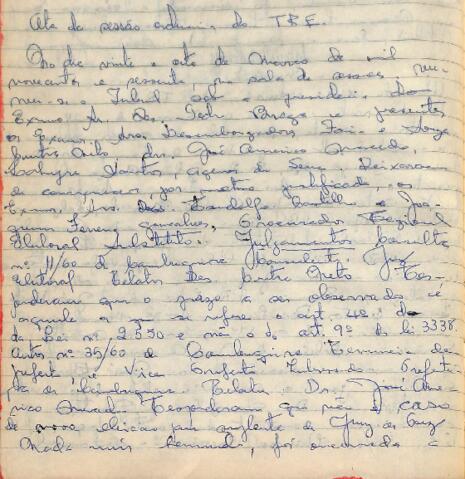 Ata da sessão ordinária do T.R.E.
No dia vinte e oito de Março de mil
novecentos e sessenta, na sala de sessões, reu-
niu-se o Tribunal sob a presidência do
Exmo Sr. Des. Braga e presentes
os Exmos. Srs. Desembargadores Faria e Souza
Dr. José Americo Macedo,
Santos, Cicero de Sena. Deixaram
de comparecer, por motivo justificado, os
Exmos. Srs. Des. Candelfo e Joa-
quim Ferreira Gonçalves, Procurador Regional
Eleitoral Substituto. Julgamentos Consulta
nº 11/60 de Cambuquira Consulente: Juiz
Eleitoral Relator Des. Britto Preto Res-
ponderam que o prazo a ser observado é
aquele a que se refere o art. 40. da
da Lei nº 2.550 e não o do art. 9º da lei 3338.
Autos nº 35/60 de Cambuquira
prefeito e Vice Prefeito Prefeitu-
ra de Cambuquira Relator Dr. José Ame-
rico Macedo Responderam que não é caso
de nova eleição para suplente de Juiz de Paz
Nada mais havendo, foi encerrada a